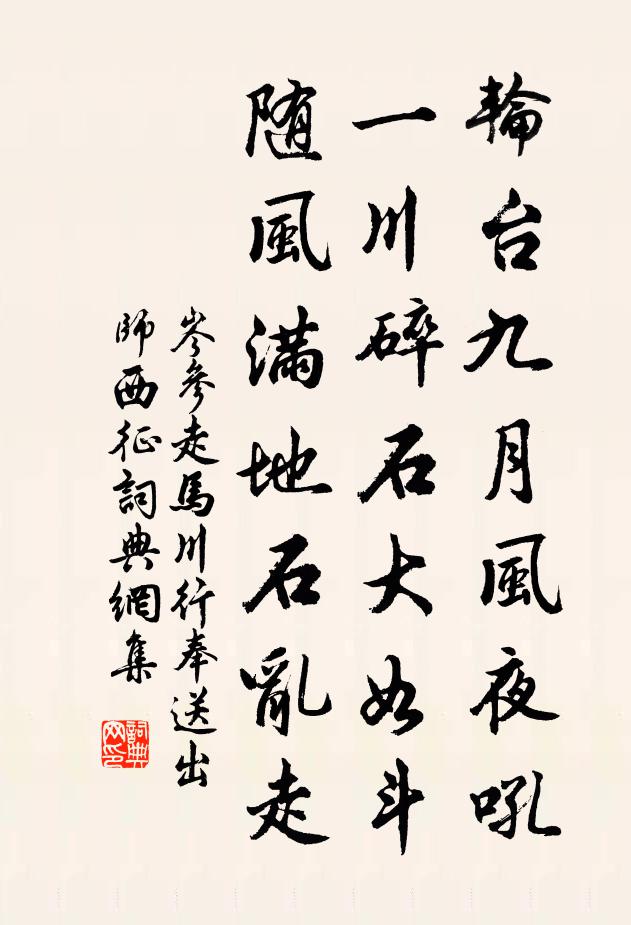 輪台九月風夜吼
一川碎石大如斗
随風满地石亂走
岑參走馬川行奉送出
師西征詞典網集
詞典网印